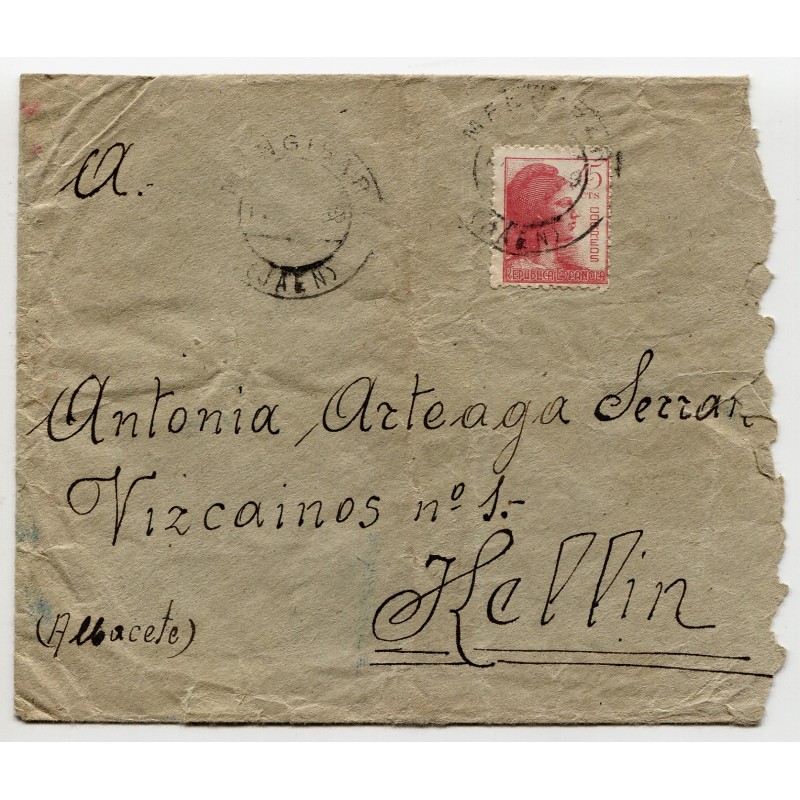 A.-
MENGIBAR
(JAEN)
MENGIBAR
(JAEN)
45 CTS
CORREOS
REPUBLICA ESPAÑOLA
Antonia Arteaga Serran
Vizcainos nº 1.-
Hellin
(Albacete)